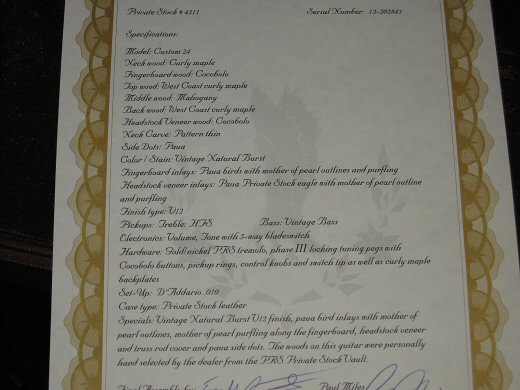 Private Stock # 4511 Serial Number: 13-202843
Specifications:
Model: Custom 24
Neck wood: Curly maple
Fingerboard wood: Cocobolo
Top wood: West Coast curly maple
Middle wood: Mahogany
Back wood: West Coast curly maple
Headstock Veneer wood: Cocobolo
Neck Carve: Pattern thin
Side Dots: Paua
Color / Stain: Vintage Natural Burst
Fingerboard inlays: Paua birds with mother of pearl outlines and purfling
Headstock veneer inlays: Paua Private Stock eagle with mother of pearl outline
and purfling
Finish type: V12
Pickups: Treble: HFS Bass: Vintage Bass
Electronics: Volume, Tone with 5-way bladeswitch
Hardware: Gold/nickel PRS tremolo, phase III locking tuning pegs with
Cocobolo buttons, pickup rings, control knobs and switch tip as well as curly maple
backplates
Set-Up: D'Addario .010
Case type: Private Stock leather
Specials: Vintage Natural Burst V12 finish, paua bird inlays with mother of
pearl outlines, mother of pearl purfling along the fingerboard, headstock veneer
and truss rod cover and paua side dots. The woods on this guitar were personally
hand selected by the dealer from the PRS Private Stock Vault.
Final Assembly by: Paul Miles